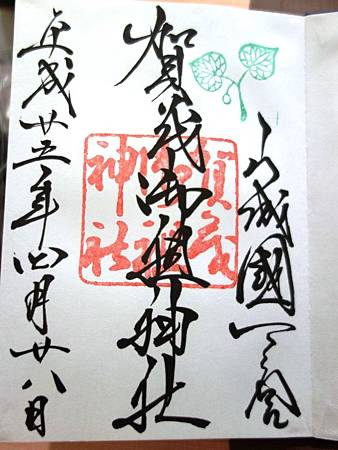 山城國一之宮
賀茂御祖神社
平成廿五年四月廿八日
賀茂
御祖
神社